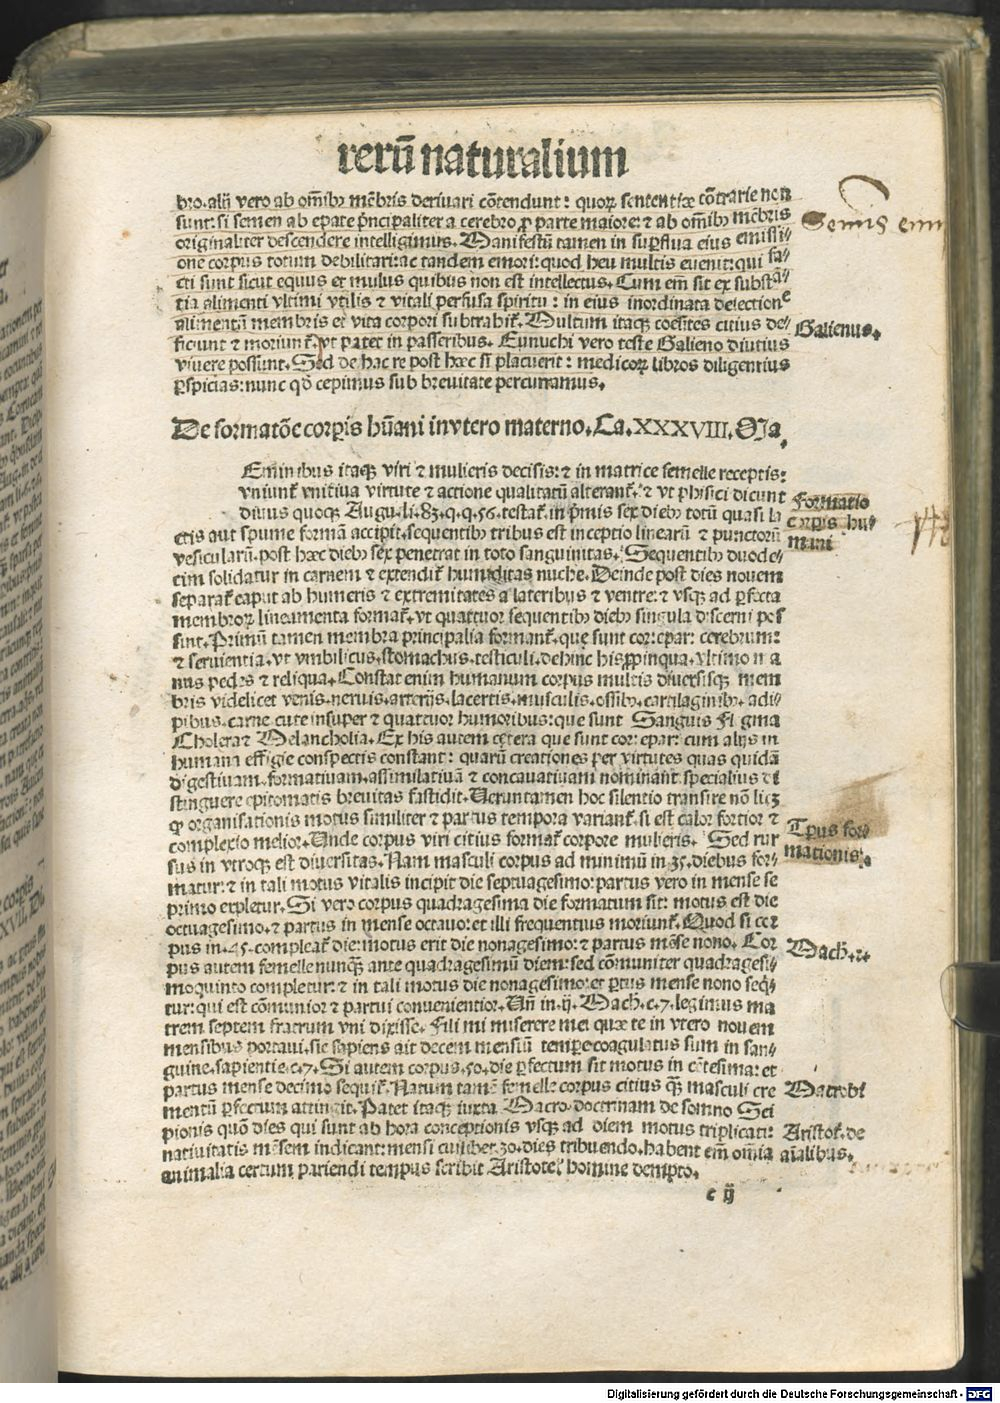 rerū naturalium
bro. alij vero ab om̄ibꝰ mēbris deriuari cōtendunt: quoꝝ sententiæ cōtrarie non
sunt: si semen ab epate p̄ncipaliter a cerebro ꝓ parte maiore: ⁊ ab om̄ibꝰ mēbris
originaliter descendere intelligimus. Manifestū tamen in suꝑflua eius emissi⸗
one corpus totum debilitari: ac tandem emori: quod heu multis euenit: qui fa⸗
cti sunt sicut equus et mulus quibus non est intellectus. Cum em̄ sit ex substā⸗
tia alimenti vltimi vtilis ⁊ vitali perfusa spiritu: in eius inordinata deiectione
alimentū membris et vita corpori subtrahit᷑. Multum itaqꝫ coeūtes citius de⸗
ficiunt ⁊ moriunt᷑. vt patet in passeribus. Eunuchi vero teste Galieno diutius
viuere possunt. Sed de hac re post hæc si placuerit: medicoꝝ libros diligentius
ꝑspicias: nunc qd̄ cepimus sub breuitate percurramus.
Semīs emi
Galienus.
De formatōe corꝑis hūani in vtero materno. Ca. XXXVIII. Ma.
Eminibus itaqꝫ viri ⁊ mulieris decisis: ⁊ in matrice femelle receptis:
vniunt᷑ vnitiua virtute ⁊ actione qualitatū alterant᷑. ⁊ vt phisici dicunt
diuus quoqꝫ Augu. li. 83. q. q. 56. testat᷑. in p̄mis sex diebꝰ totū quasi la
ctis aut spume formā accipit. sequentibꝰ tribus est inceptio linearū ⁊ punctorū
vesicularū. post hæc diebꝰ sex penetrat in toto sanguinitas. Sequentibꝰ duode⸗
cim solidatur in carnem ⁊ extendit᷑ humiditas nuche. Deinde post dies nouem
separat᷑ caput ab humeris ⁊ extremitates a lateribus ⁊ ventre: ⁊ vsqꝫ ad ꝑfecta
membroꝝ lineamenta format᷑. vt quattuor sequentibꝰ diebꝰ singula discerni pos
sint. Primū tamen membra principalia formant᷑. que sunt cor: epar: cerebrum:
⁊ seruientia. vt vmbilicus. stomachus. testiculi. dehinc his ꝓpinqua. vltimo ma
nus pedes ⁊ reliqua. Constat enim humanum corpus multis diuersisqꝫ mem
bris videlicet venis. neruis. arterijs. lacertis. musculis. ossibꝰ. cartilaginibꝰ. adi⸗
pibus. carne cute insuper ⁊ quatuor humoribus: que sunt Sanguis Flegma
Cholera ⁊ Melancholia. Ex his autem cetera que sunt cor: epar: cum alijs in
humana effigie conspectis constant: quarū creationes per virtutes quas quidā
digestiuam. formatiuam. assimilatiuā ⁊ concauatiuam nominant specialius di
stinguere epitomatis breuitas fastidit. Veruntamen hoc silentio transire nō licꝫ
ꝙ organisationis motus similiter ⁊ partus tempora variant᷑. si est calor fortior ⁊
complexio melior. Unde corpus viri citius format᷑ corpore mulieris. Sed rur
sus in vtroqꝫ est diuersitas. Nam masculi corpus ad minimū in 35. diebus for⸗
matur: ⁊ in tali motus vitalis incipit die septuagesimo: partus vero in mense se
primo expletur. Si vero corpus quadragesima die formatum sit: motus est die
octuagesimo. ⁊ partus in mense octauo: et illi frequentius moriunt᷑. Quod si cor
pus in. 45. compleat᷑ die: motus erit die nonagesimo: ⁊ partus mēse nono. Cor
pus autem femelle nunqꝫ̄ ante quadragesimū diem: sed cōmuniter quadragesi⸗
mo quinto completur: ⁊ in tali motus die nonagesimo: et ꝑtus mense nono seqͥ⸗
tur: qui est cōmunior ⁊ partui conuenientior. Un̄ in. ij. Mach. c. 7. legimus ma
trem septem fratrum vni dixisse. Fili mi miserere mei quæ te in vtero nouem
mensibus portaui. sic sapiens ait decem mensiū tempore coagulatus sum in san⸗
guine. sapientie. c. 7. Si autem corpus. 50. die ꝑfectum sit motus in cētesima: et
partus mense decimo sequit᷑. Natum tamē femelle corpus citius qꝫ̄ masculi cre
mentū ꝑfectum attingit. Patet itaqꝫ iuxta Macro. doctrinam de somno Sci
pionis quō dies qui sunt ab hora conceptionis vsqꝫ ad diem motus triplicati:
natiuitatis mēsem indicant: mensi cuilibet. 30. dies tribuendo. habent em̄ om̄ia
animalia certum pariendi tempus scribit Aristote. homine dempto.
Formatio
corꝑis hu⸗
mani
Tp̄us for⸗
mationis.
Mach. 2.
Macrobi
Aristot᷑. de
aīalibus.
c ij
Digitalisierung gefördert durch die Deutsche Forschungsgemeinschaft - DFG